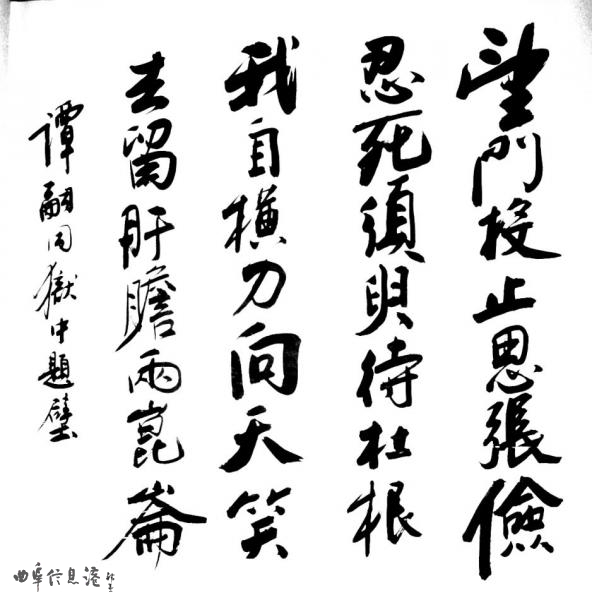 望門投止思張儉
忍死須臾待杜根
我自横刀向天笑
去留肝膽兩崑崙
譚嗣同獄中題壁
曲阜信息港